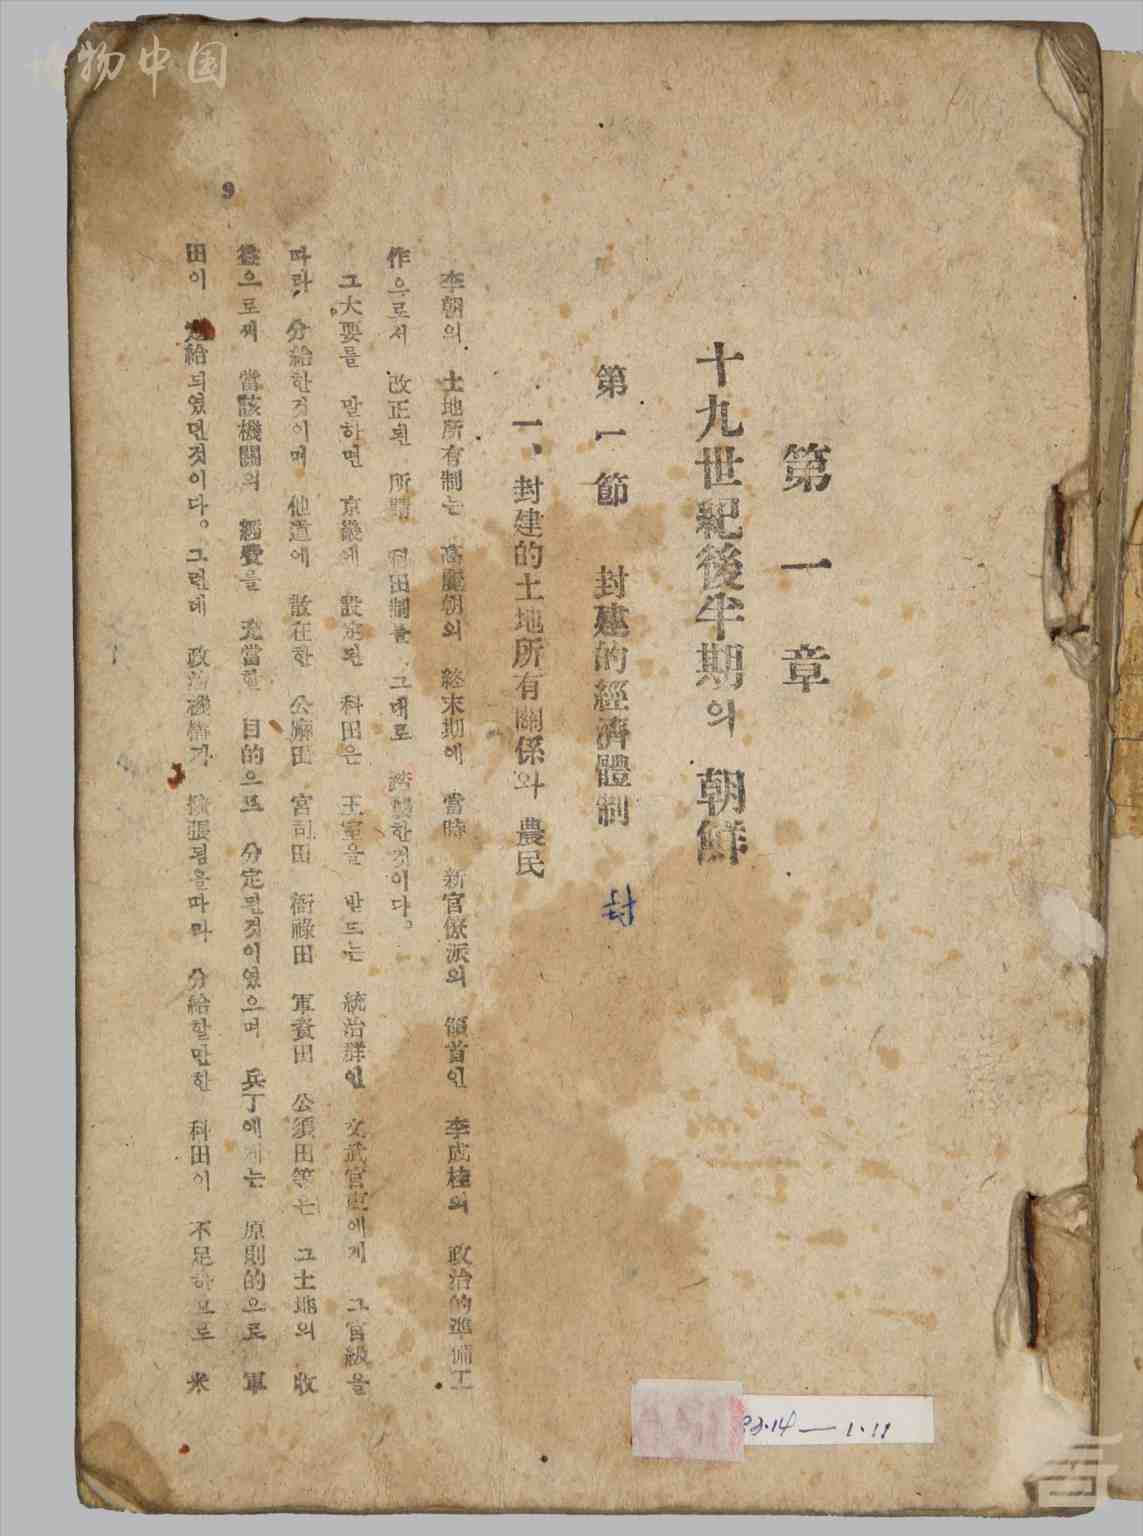 博物中国
第一章
十九世紀後半期의 朝鮮
第一節 封建的經濟體制
封
一、封建的土地所有關係와 農民
李朝의 土地所有制는 高麗朝의 終末期에 當時 新官僚派의 領首인 李成桂의 政治的準備工
作으로서 改正된 所謂 科田制를 그대로 踏襲한것이다。
그大要를 말하면 京畿에 設定된 科田은 王室을 받드는 統治群인 文武官吏에게 그官級을
따라 分給한것이며 他道에 散在한 公廨田 宮司田 衙祿田 軍資田 公須田等은 그土地의 收
穫으로써 當該機關의 經費을 充當할 目的으로 分定된것이였으며 兵丁에게는 原則的으로 軍
田이 給되였던것이다。그런데 政治機構가 擴張됨을따라 分給할만한 科田이 不足하므로 米
9
14—1.11